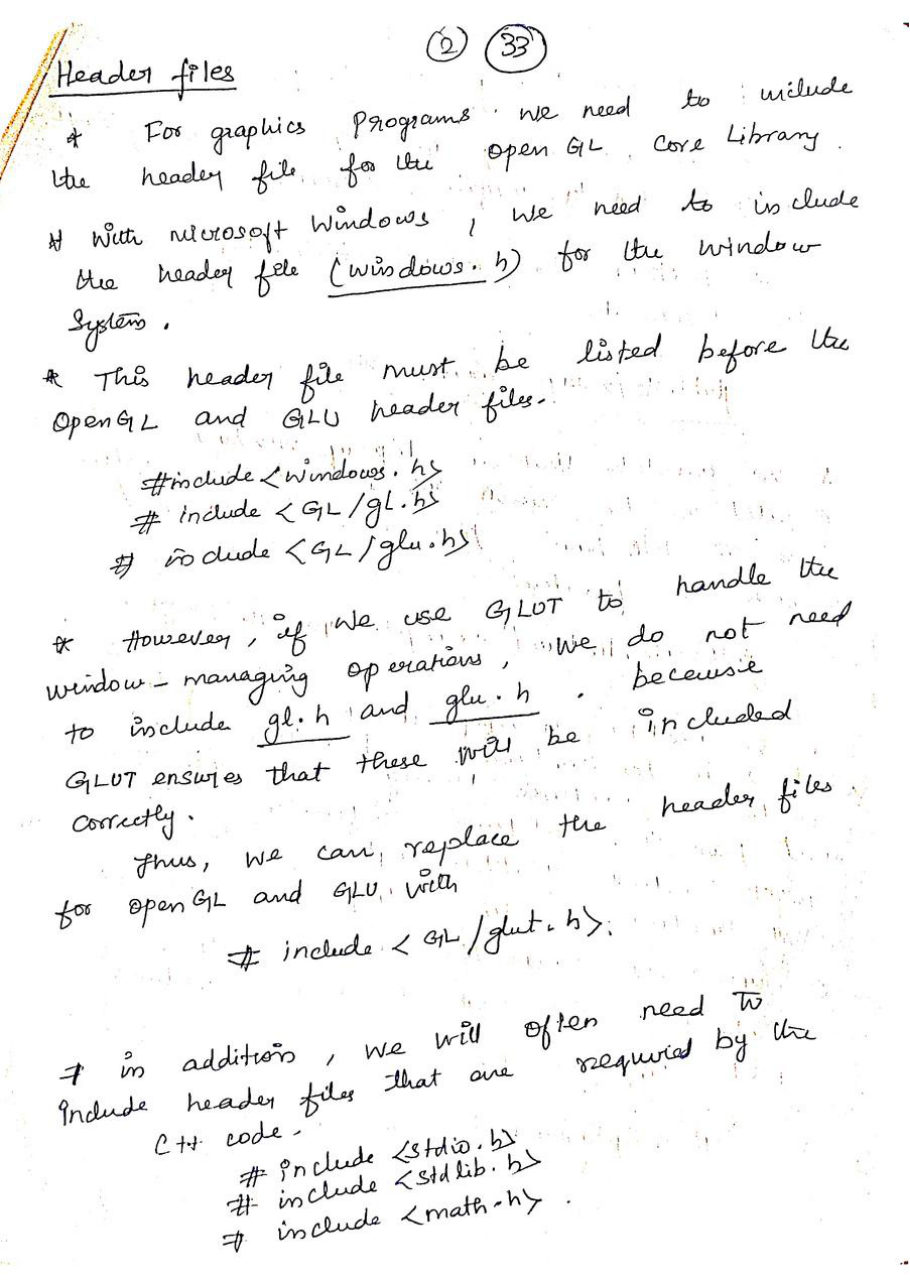 2 33
Header files
* For graphics Programs we need to include
the header file for the open GL Core Library.
* With microsoft Windows, we need to include
the header file (windows.h) for the window
System.
* This header file must be listed before the
OpenGL and GLU header files.
#include <windows.h>
# include <GL/gl.h>
# include <GL/glu.h>
* However, if we use GLUT to handle the
window-managing operations, we do not need
to include gl.h and glu.h. because
GLUT ensures that these will be included
correctly.
Thus, we can replace the header files
for open GL and GLU with
# include <GL/glut.h>.
* in addition, we will often need to
include header files that are required by the
C++ code.
# include <stdio.h>
# include <stdlib.h>
# include <math.h>.